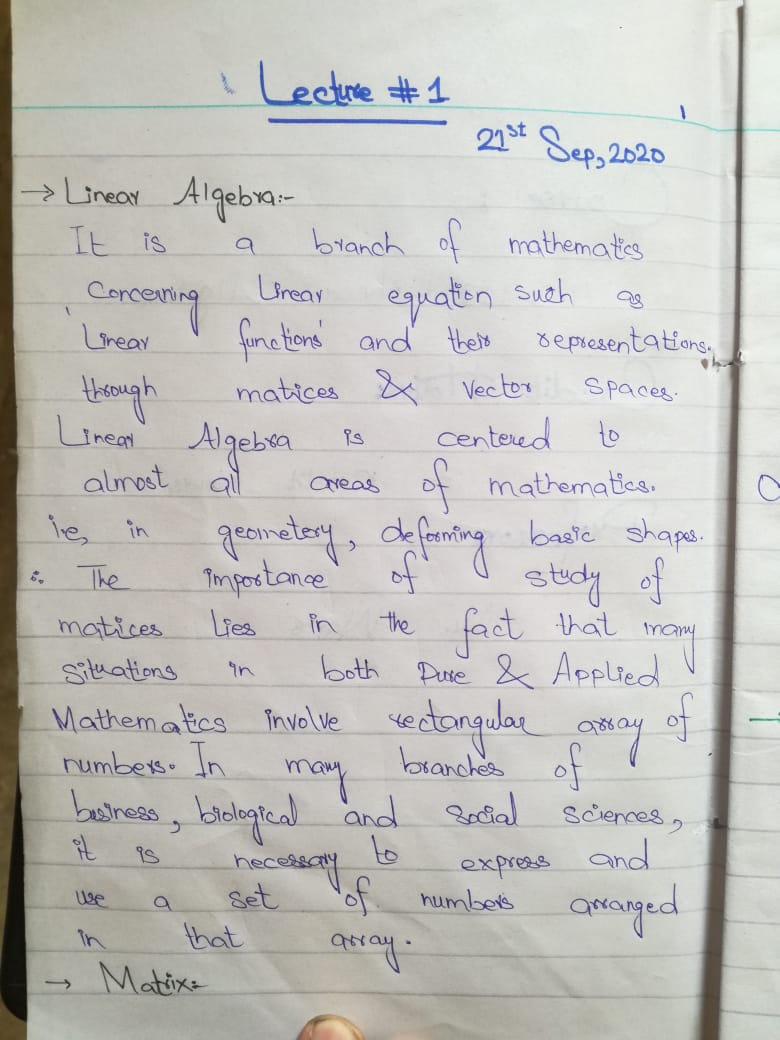 Lecture #1
1
21st Sep, 2020
→ Linear Algebra:-
It is a branch of mathematics
Concerning Linear equation such as
Linear functions and their representations.
through matices & Vector Spaces.
Linear Algebra is centered to
almost all areas of mathematics.
i.e, in geometery, deforming basic shapes.
∴ The importance of study of
matices Lies in the fact that many
Situations in both Pure & Applied
Mathematics involve rectangular array of
numbers. In many branches of
business, biological and Social Sciences,
it is necessary to express and
use a set of numbers arranged
in that array.
→ Matrix:-